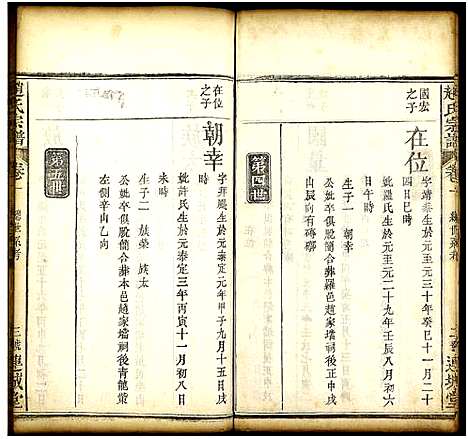 趙氏宗譜
卷一
二號 連城堂
第四世
國宏之子
在位
字靖泰生於元至元三十年癸巳十一月二十
四日巳時
妣羅氏生於元至元二十九年壬辰八月初六
日午時
生子一 朝幸
公妣卒俱股簡合葬羅邑趙家壋祠後青龍
山辰向有磚墎
第五世
在位之子
朝幸
生於元泰定元年甲子九月十五日戌
時
妣許氏生於元泰定三年丙寅十一月初八日
未時
生子二 族榮 族太
公妣卒俱股簡合葬本邑趙家壋祠後青龍山
左側辛山乙向
趙氏宗譜
卷一
三號 連城堂